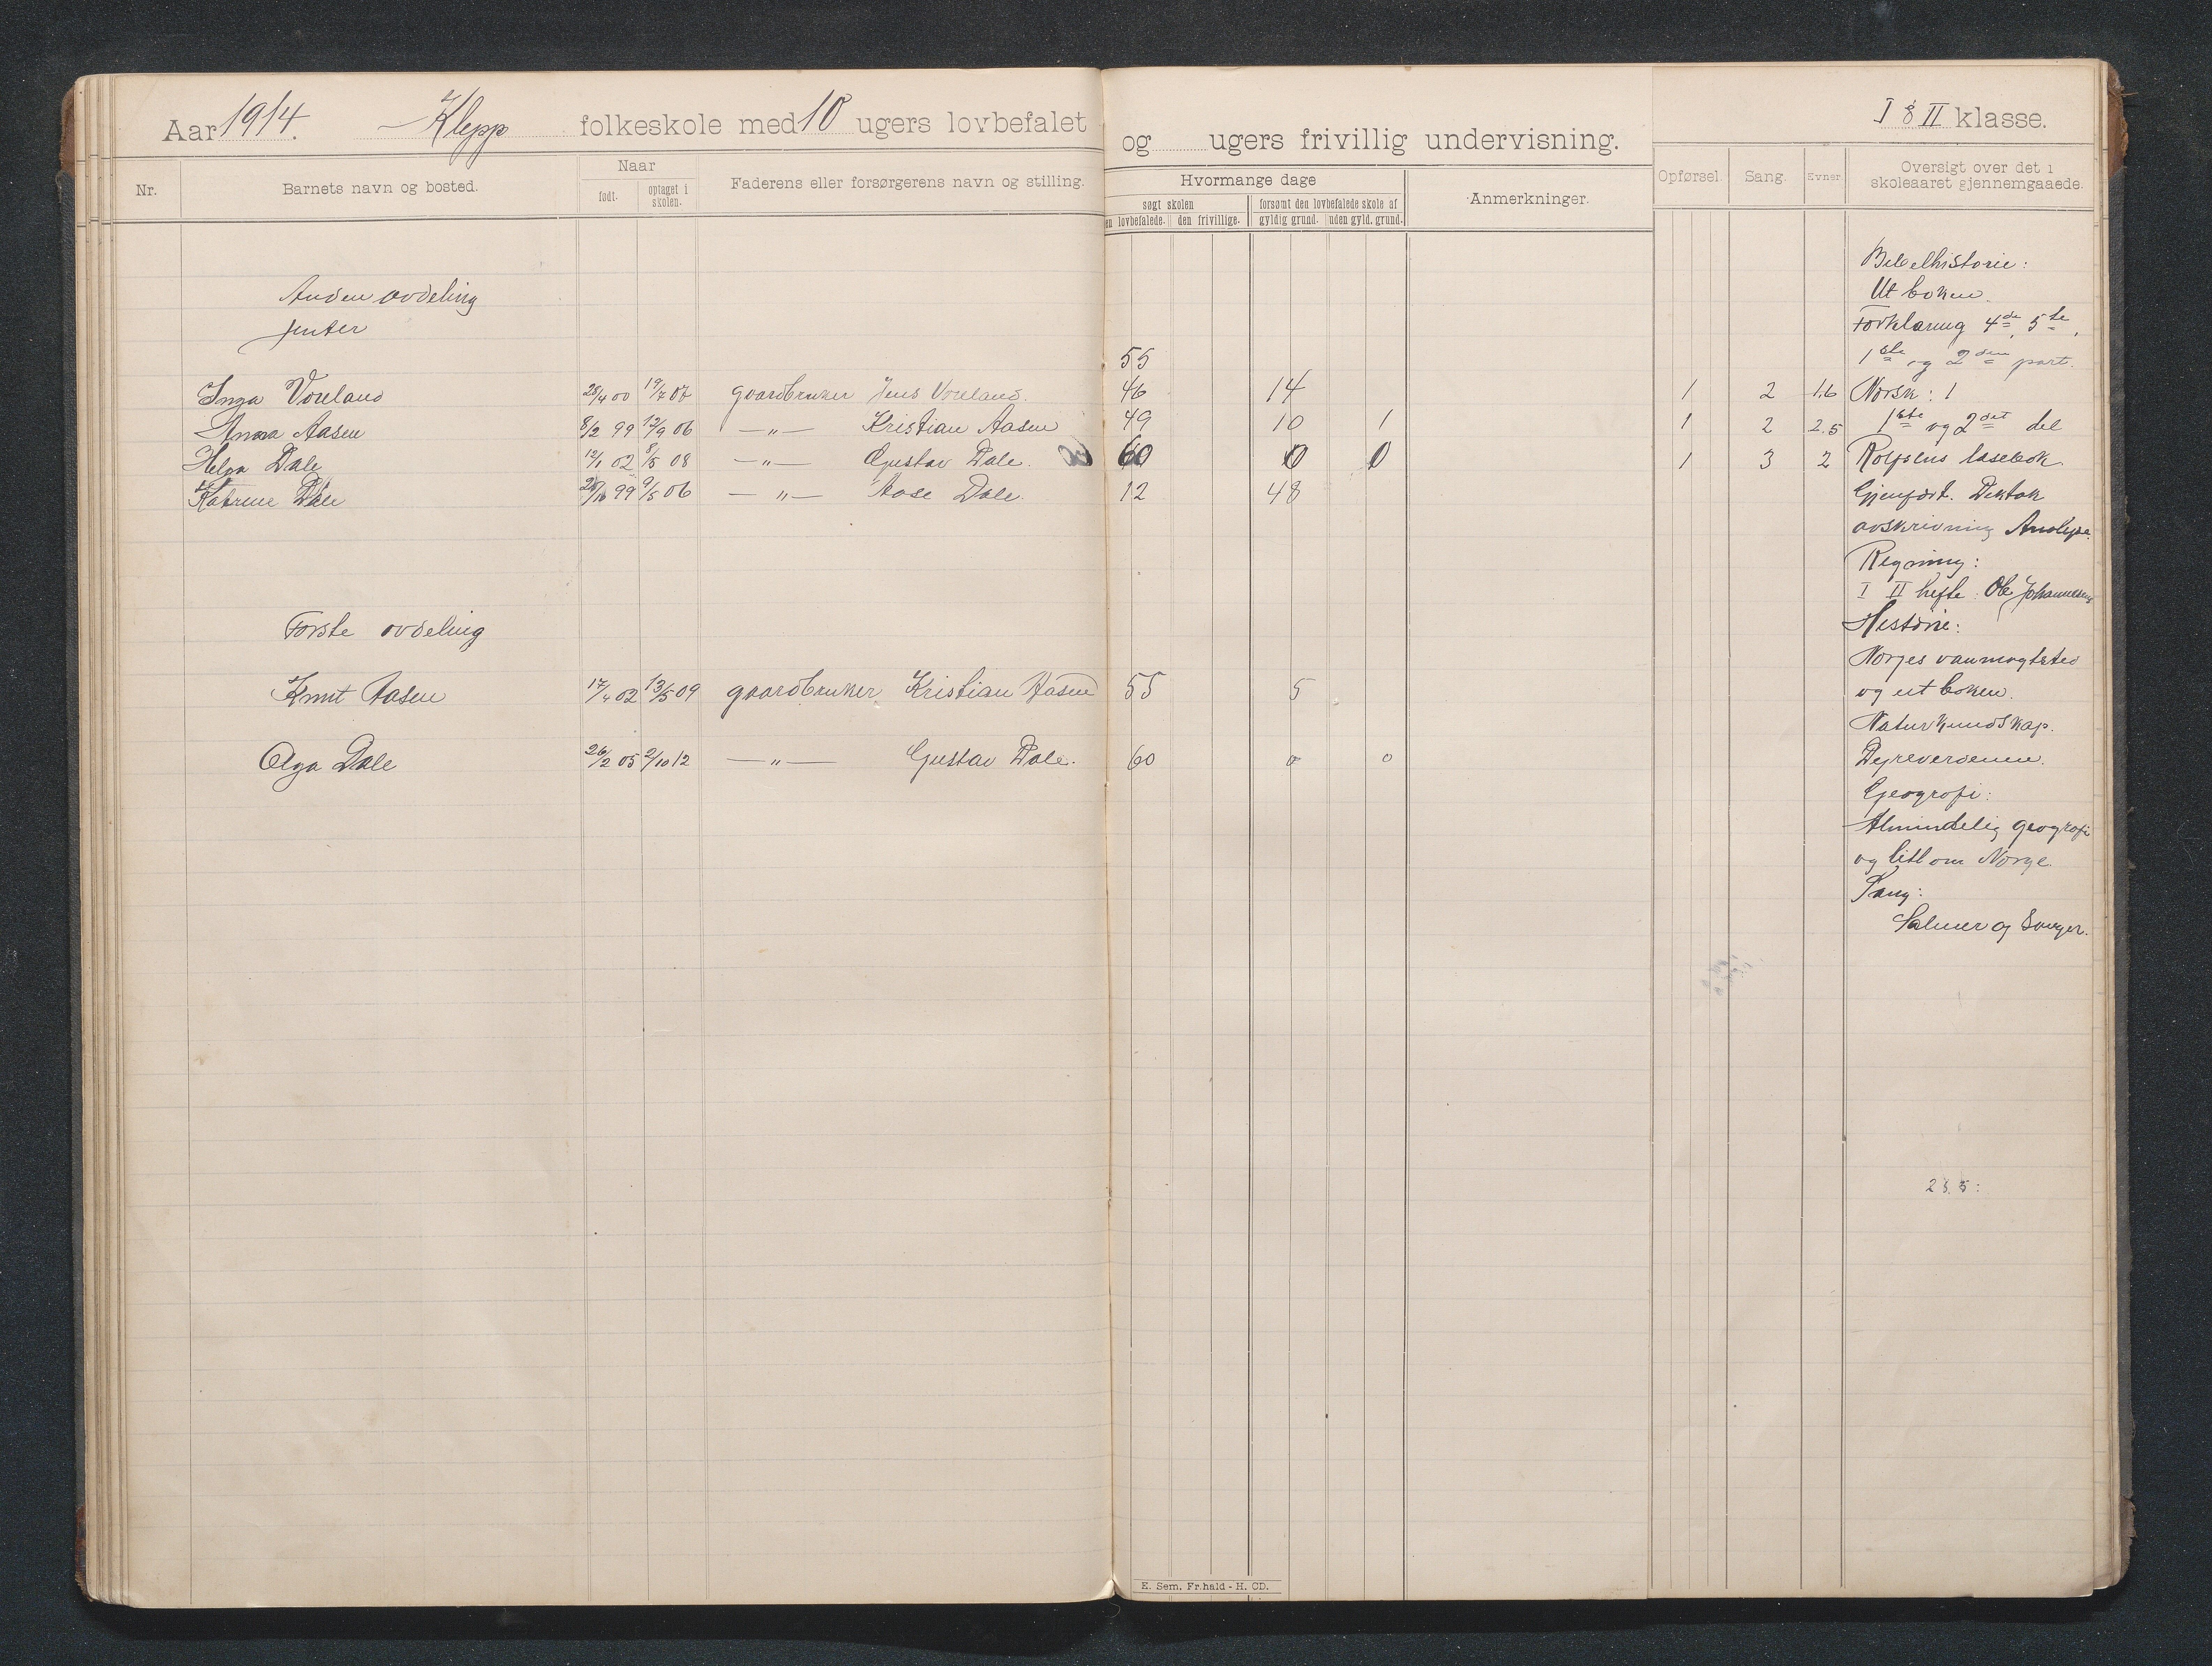 Aar 1914. Klepp folkeskole med 10 ugers lovbefalet og ugers frivillig undervisning. I & II klasse.
Nr. Barnets navn og bosted. Naar Faderens eller forsørgerens navn og stilling.
født. optaget i skolen.
Hvormange dage Anmerkninger. Opførsel. Sang. Evner. Oversigt over det i
skoleaaret gjennemgaaede.
søgt skolen forsømt den lovbefalede skole af
en lovbefalede. den frivillige. gyldig grund. uden gyld. grund.
Anden avdeling
jenter
55
Inga Voreland 28/4 00 19/4 07 gaardbruker Jens Voreland. 46 14 1 2 1.6
Anna Aasen 8/2 99 12/9 06 —"— Kristian Aasen 49 10 1 1 2 2.5
Helga Dale 12/1 02 8/5 08 —"— Gustav Dale. 60 0 0 1 3 2
Katrine Dale 99 9/5 06 —"— Aase Dale. 12 48
Første avdeling
Knut Aasen 17/4 02 13/5 09 gaardbruker Kristian Aasen 55 5
Olga Dale 26/2 05 2/10 12 —"— Gustav Dale. 60 0 0
Bibelhistorie:
Ut boken.
Forklaring 4de, 5te,
1ste og 2den part.
Norsk: 1
1ste og 2det del
Rolfsens læsebok.
Gjenfort. Diktat
avskrivning Analyse.
Regning:
I II hefte: Ole Johannesens
Historie:
Norges vanmagtstid
og ut boken.
Naturkundskap.
Dyreverdenen.
Geografi:
Almindelig geografi
og litt om Norge.
Sang:
Salmer og Sanger.
E. Sem. Fr.hald - H. CD.